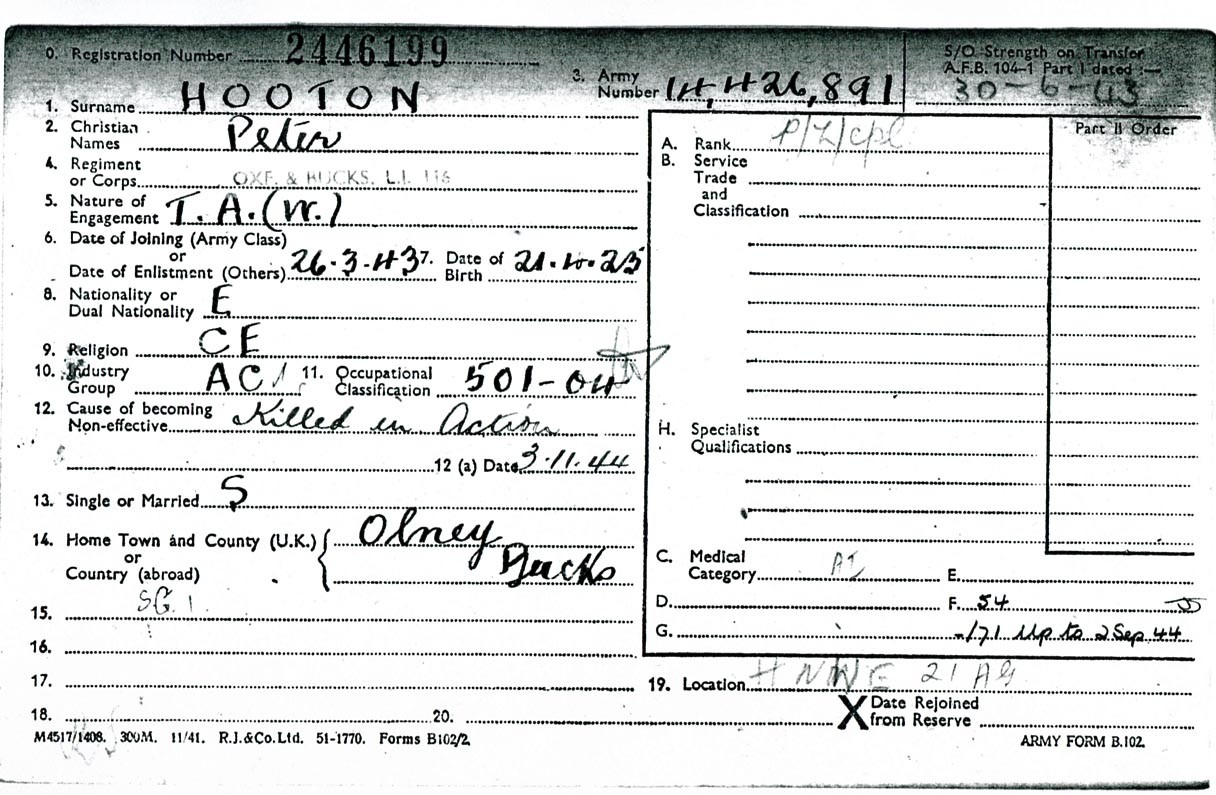 0. Registration Number 2446199
S/O Strength on Transfer
A.F.B. 104-1 Part I dated :—
30-6-43
3. Army
Number 14,426,891
1. Surname HOOTON
2. Christian
Names Peter
4. Regiment
or Corps OXF. & BUCKS. L.I. 116
5. Nature of
Engagement T.A.(W.)
6. Date of Joining (Army Class)
or
Date of Enlistment (Others) 26.3.43
7. Date of
Birth 21.10.25
8. Nationality or
Dual Nationality E
9. Religion CE
10. Industry
Group AC1
11. Occupational
Classification 501-04
12. Cause of becoming
Non-effective Killed in Action
12 (a) Date 3.11.44
13. Single or Married S
14. Home Town and County (U.K.)
or
Country (abroad)
Olney
Bucks
15. SG.1.
16.
17.
18.
20.
M4517/1408. 300M. 11/41. R.J.&Co.Ltd. 51-1770. Forms B102/2.
Part II Order
A. Rank P/L/cpl
B. Service
Trade
and
Classification
H. Specialist
Qualifications
C. Medical
Category A1
E.
D.
F. 54
G. -/71 Up to 2 Sep 44
19. Location NWE 21 AG
X Date Rejoined
from Reserve
ARMY FORM B.102.